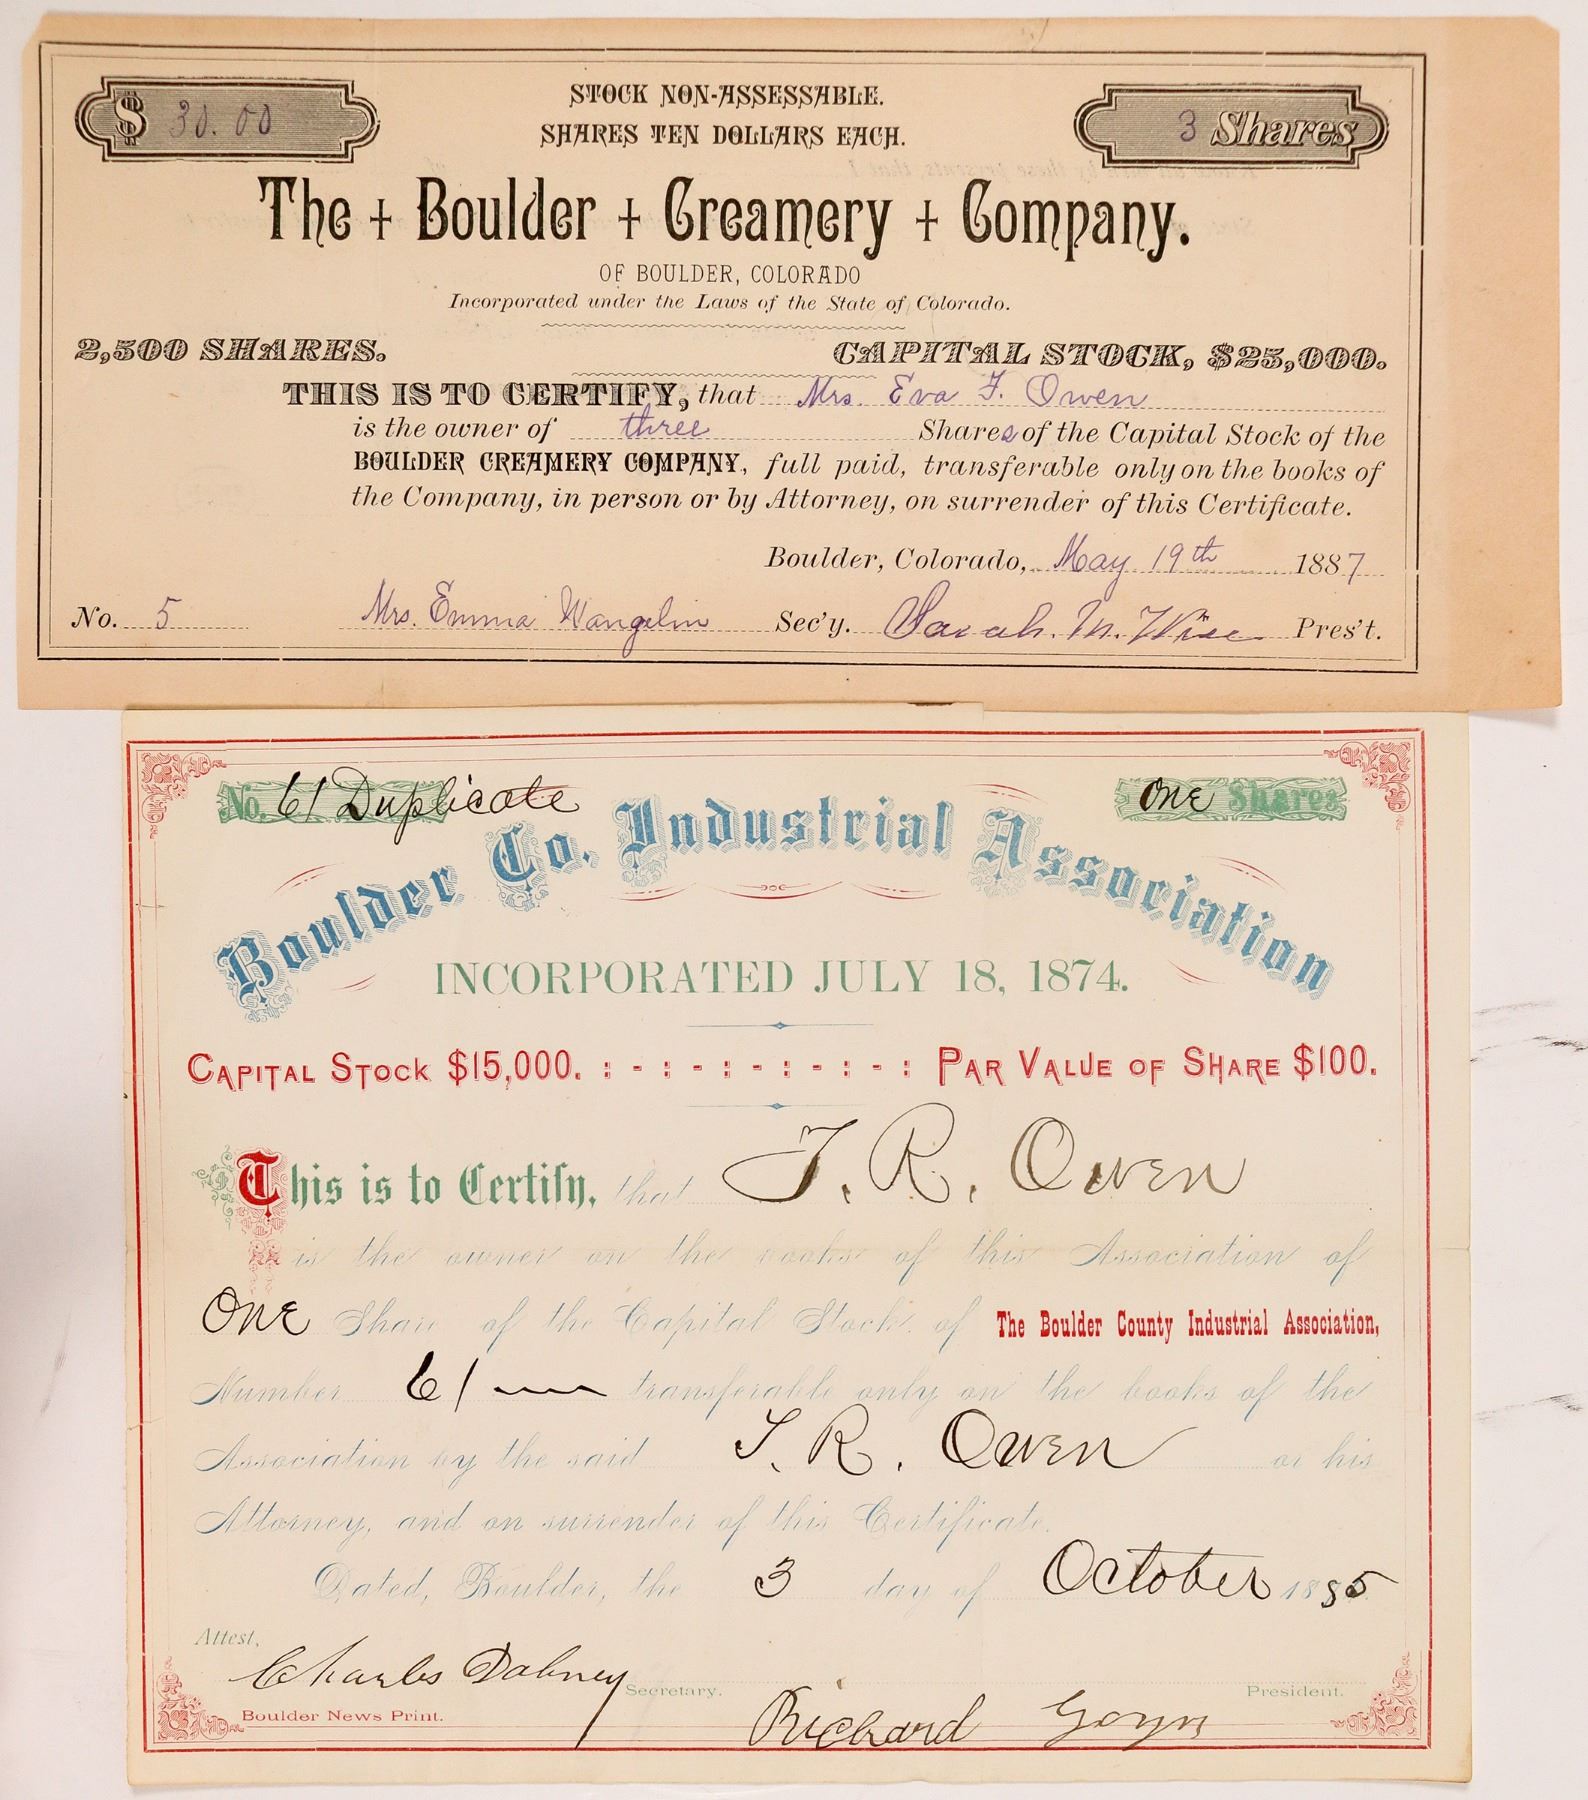 $ 30.00
STOCK NON-ASSESSABLE.
SHARES TEN DOLLARS EACH.
3 Shares
The + Boulder + Creamery + Company.
OF BOULDER, COLORADO
Incorporated under the Laws of the State of Colorado.
2,500 SHARES. CAPITAL STOCK, $25,000.
THIS IS TO CERTIFY, that Mrs. Eva F. Owen
is the owner of three Shares of the Capital Stock of the
BOULDER CREAMERY COMPANY, full paid, transferable only on the books of
the Company, in person or by Attorney, on surrender of this Certificate.
Boulder, Colorado, May 19th 1887
No. 5 Mrs. Emma Wangelin Sec'y. Sarah. M. Wise Pres't.
No. 61 Duplicate
One Shares
Boulder Co. Industrial Association
INCORPORATED JULY 18, 1874.
CAPITAL STOCK $15,000. : - : - : - : - : - : PAR VALUE OF SHARE $100.
This is to Certify, that T. R. Owen
is the owner on the books of this Association of
One Share of the Capital Stock of The Boulder County Industrial Association,
Number 61 transferable only on the books of the
Association by the said T. R. Owen or his
Attorney, and on surrender of this Certificate.
Dated, Boulder, the 3 day of October 1885
Attest,
Charles Dabney Secretary.
President.
Boulder News Print.
Richard Goyn